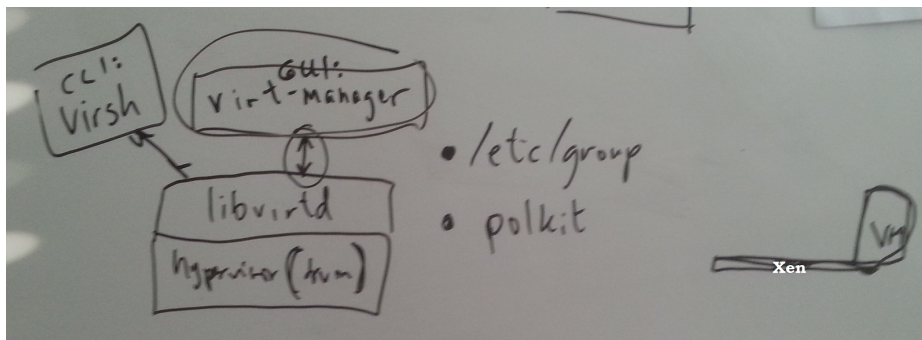 CLI:
Virsh
GUI:
virt-manager
libvirtd
hypervisor (kvm)
• /etc/group
• polkit
VM
Xen